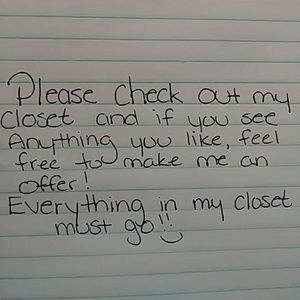 Please check out my
closet and if you see
Anything you like, feel
free to make me an
offer!
Everything in my closet
must go!!